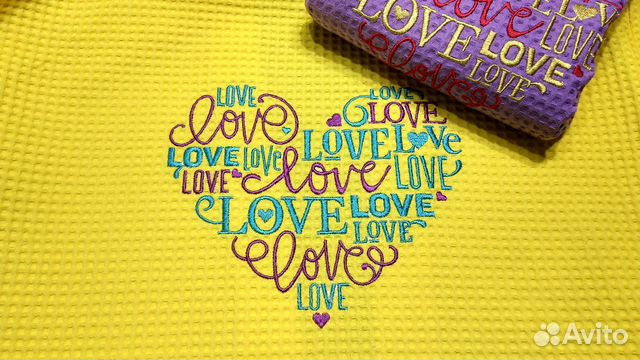 LOVE LOVE
love LOVE
LOVE LOVe
LOVE LOVe
LOVE love LOVE
LOVE LOVE
LOVE
love
LOVE
LOVE love LOVE
LOVE LOVE
love LOVE
Avito